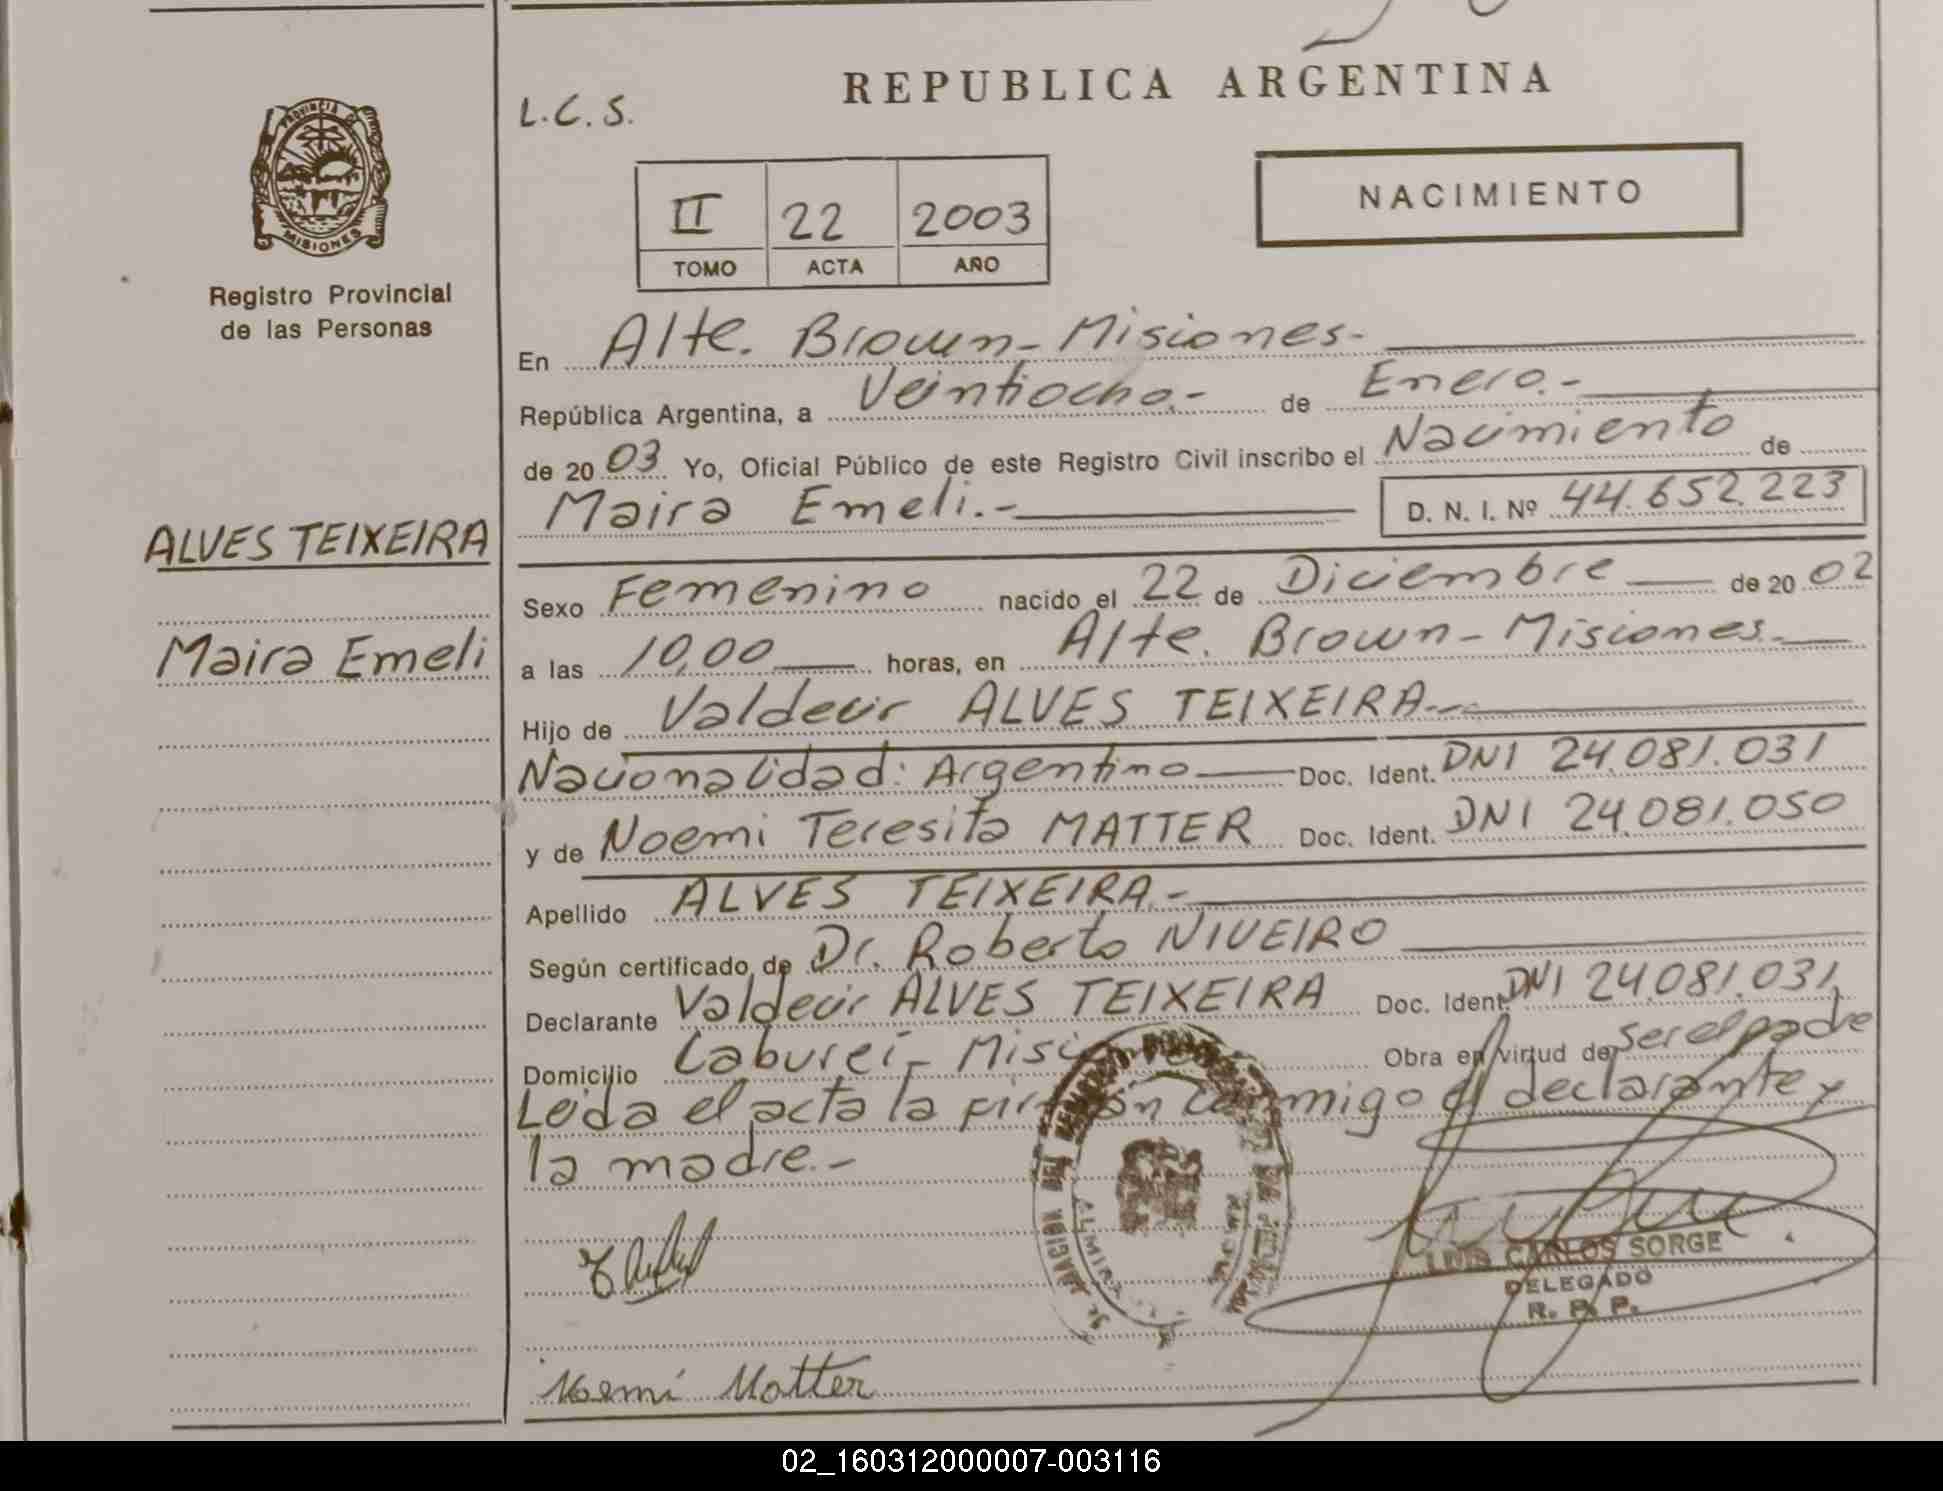 REPUBLICA ARGENTINA
L.C.S.
PROVINCIA DE
MISIONES
Registro Provincial
de las Personas
NACIMIENTO
II 22 2003
TOMO ACTA AÑO
En Alte. Brown - Misiones.-
República Argentina, a Veintiocho.- de Enero.-
de 20 03 Yo, Oficial Público de este Registro Civil inscribo el Nacimiento de
Maira Emeli.- D. N. I. Nº 44.652.223
ALVES TEIXEIRA
Maira Emeli
Sexo Femenino nacido el 22 de Diciembre de 20 02
a las 10,00 horas, en Alte. Brown - Misiones.-
Hijo de Valdecir ALVES TEIXEIRA.-
Nacionalidad: Argentino Doc. Ident. DNI 24.081.031
y de Noemi Teresita MATTER Doc. Ident. DNI 24.081.050
Apellido ALVES TEIXEIRA.-
Según certificado de Dr. Roberto NIVEIRO
Declarante Valdecir ALVES TEIXEIRA Doc. Ident. DNI 24.081.031
Domicilio Caburei - Obra en virtud de ser el padre
Leida el acta la conmigo el declarante y
la madre.-
LUIS CARLOS SORGE
DELEGADO
R. P. P.
Noemi Matter
02_160312000007-003116